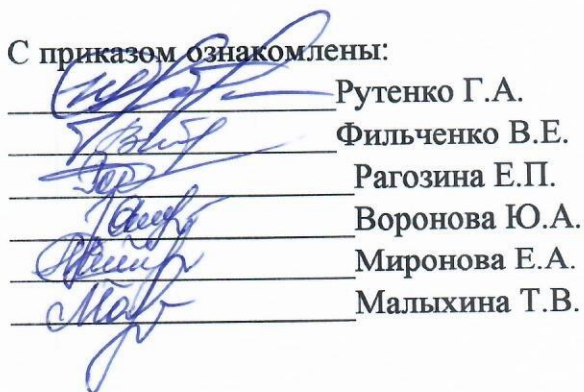 С приказом ознакомлены:
Рутенко Г.А.
Фильченко В.Е.
Рагозина Е.П.
Воронова Ю.А.
Миронова Е.А.
Малыхина Т.В.